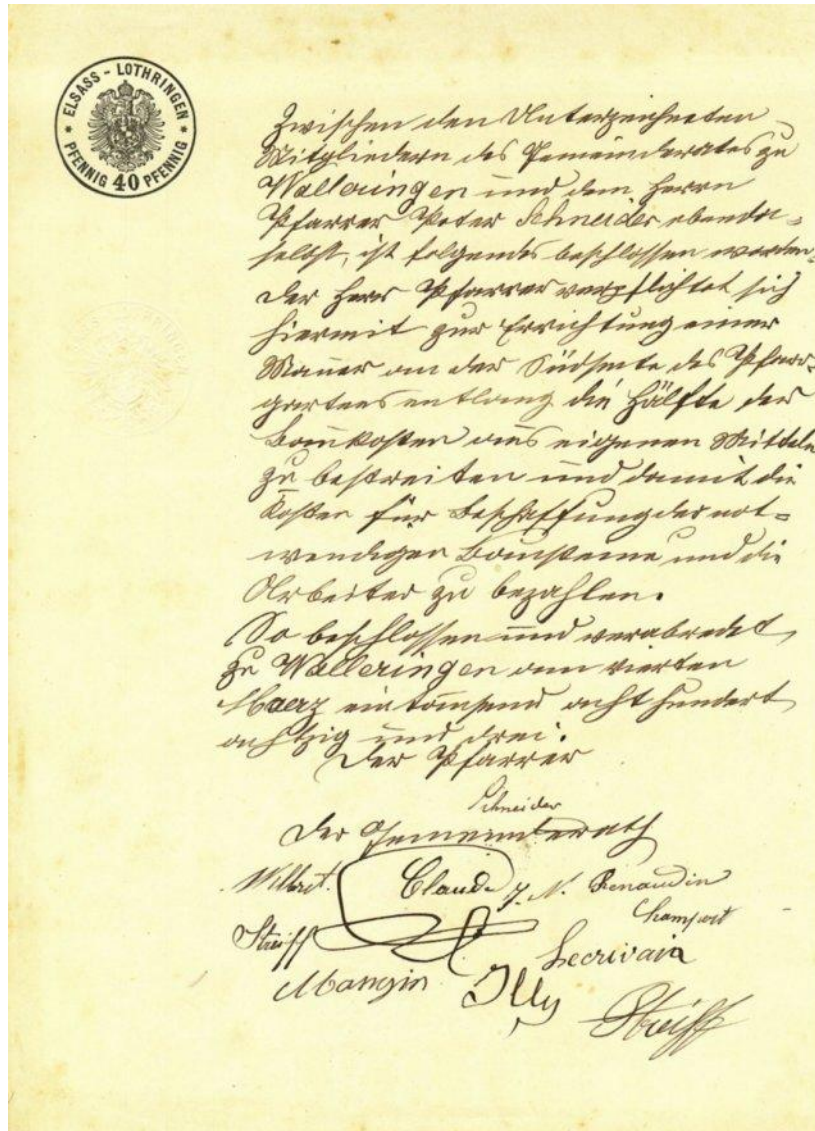 ELSASS - LOTHRINGEN
PFENNIG 40 PFENNIG
Zwischen den Unterzeichneten
Mitgliedern des Gemeinderates zu
Walleringen und dem Herrn
Pfarrer Peter Schneider ebenda=
selbst, ist folgendes beschlossen worden.
Der Herr Pfarrer verpflichtet sich
hiermit zur Errichtung einer
Mauer an der Südseite des Pfarr=
gartens entlang die Hälfte der
Baukosten aus eigenen Mitteln
zu bestreiten und damit die
Kosten für Beschaffung der not=
wendigen Bausteine und die
Arbeiter zu bezahlen.
So beschlossen und verabredet
zu Walleringen am vierten
Maerz eintausend acht hundert
achtzig und drei.
Der Pfarrer
Schneider
Der Gemeinderath
Claude J. N. Renaudin
Streiff
Lecrivain
Mangin Illy
Streiff